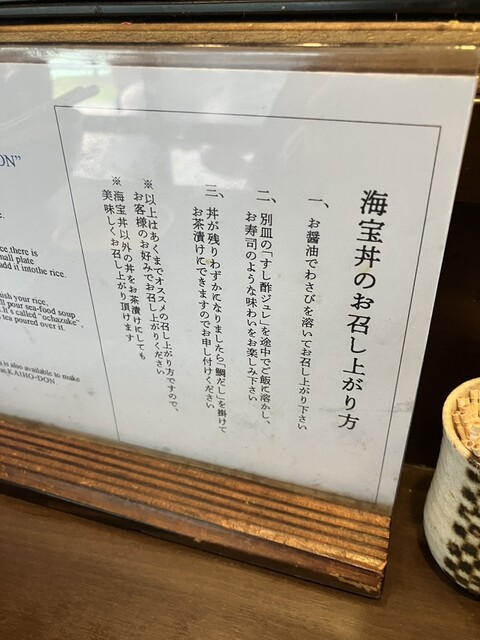 海宝丼のお召し上がり方
一、お醤油でわさびを溶いてお召し上がり下さい
二、別皿の「すし酢ジュレ」を途中でご飯に溶かし、
お寿司のような味わいをお楽しみ下さい
三、丼が残りわずかになりましたら「鯛だし」を掛けて
お茶漬けにできますのでお申し付けください
※以上はあくまでオススメの召し上がり方ですので、
お客様のお好みでお召し上がりください
※海宝丼以外の丼をお茶漬けにしても
美味しくお召し上がり頂けます
ON”
e.
rice,there is
mall plate
add it intothe rice.
nish your rice.
ll pour sea-food soup
It's called "ochazuke".
tea poured over it.
is also available to make
KAIHO-DON